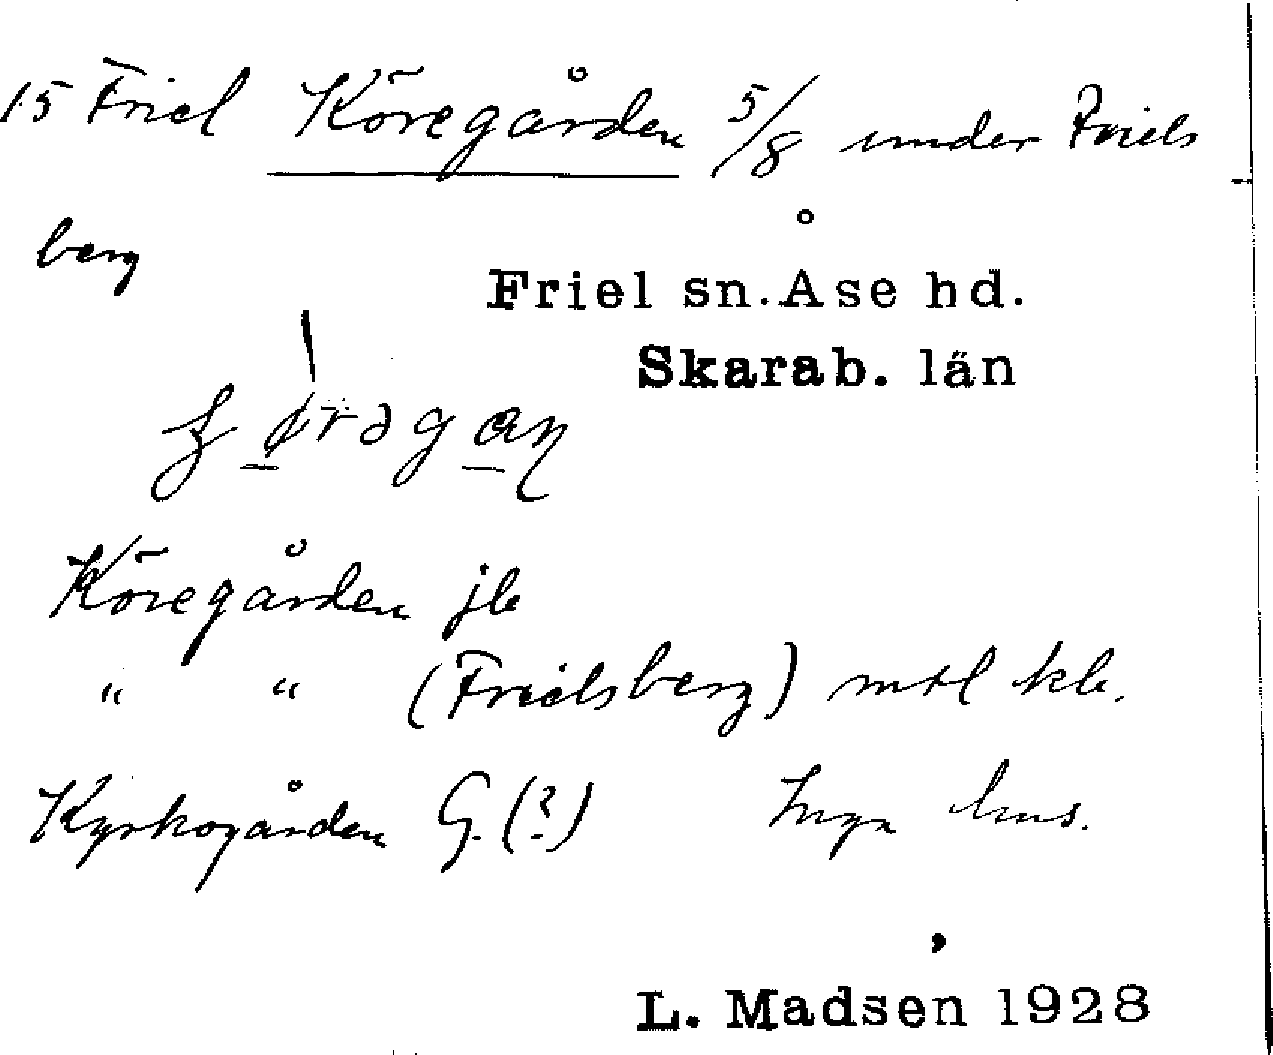 15 Friel Köregården 5/8 under Friels
berg
Friel sn. Åse hd.
Skarab. län
Köregården jb
" " (Frielsberg) mtl kb.
Kyrkogården G. (?) Inga hus.
L. Madsen 1928